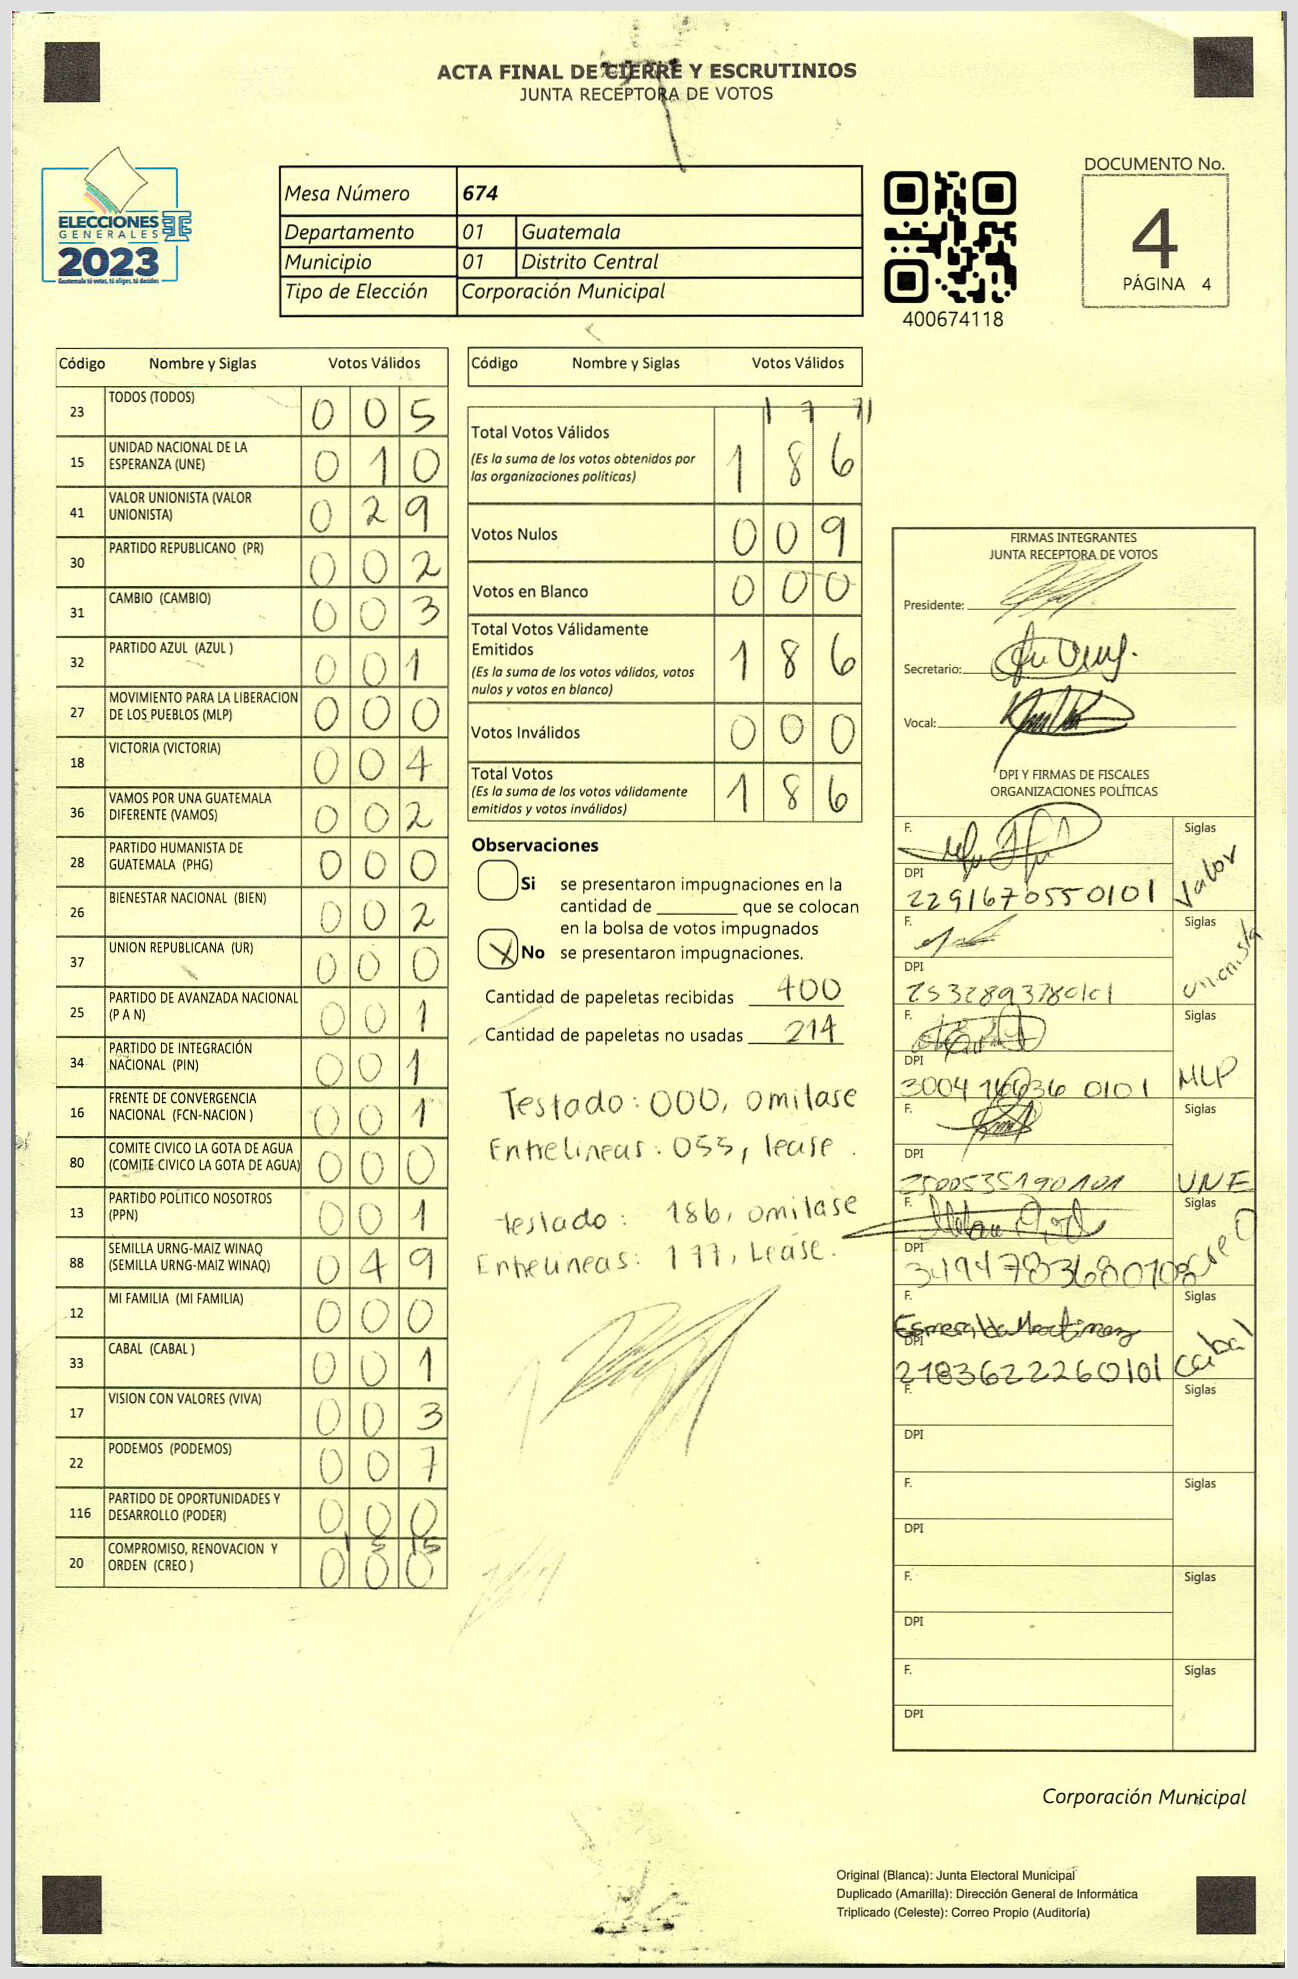 ACTA FINAL DE CIERRE Y ESCRUTINIOS
JUNTA RECEPTORA DE VOTOS
ELECCIONES
GENERALES
2023
Guatemala tú votas, tú eliges, tú decides
Mesa Número 674
Departamento 01 Guatemala
Municipio 01 Distrito Central
Tipo de Elección Corporación Municipal
400674118
DOCUMENTO No.
4
PÁGINA 4
Código Nombre y Siglas Votos Válidos
23 TODOS (TODOS) 0 0 5
15 UNIDAD NACIONAL DE LA ESPERANZA (UNE) 0 1 0
41 VALOR UNIONISTA (VALOR UNIONISTA) 0 2 9
30 PARTIDO REPUBLICANO (PR) 0 0 2
31 CAMBIO (CAMBIO) 0 0 3
32 PARTIDO AZUL (AZUL ) 0 0 1
27 MOVIMIENTO PARA LA LIBERACION DE LOS PUEBLOS (MLP) 0 0 0
18 VICTORIA (VICTORIA) 0 0 4
36 VAMOS POR UNA GUATEMALA DIFERENTE (VAMOS) 0 0 2
28 PARTIDO HUMANISTA DE GUATEMALA (PHG) 0 0 0
26 BIENESTAR NACIONAL (BIEN) 0 0 2
37 UNION REPUBLICANA (UR) 0 0 0
25 PARTIDO DE AVANZADA NACIONAL (P A N) 0 0 1
34 PARTIDO DE INTEGRACIÓN NACIONAL (PIN) 0 0 1
16 FRENTE DE CONVERGENCIA NACIONAL (FCN-NACION ) 0 0 1
80 COMITE CIVICO LA GOTA DE AGUA (COMITE CIVICO LA GOTA DE AGUA) 0 0 0
13 PARTIDO POLITICO NOSOTROS (PPN) 0 0 1
88 SEMILLA URNG-MAIZ WINAQ (SEMILLA URNG-MAIZ WINAQ) 0 4 9
12 MI FAMILIA (MI FAMILIA) 0 0 0
33 CABAL (CABAL ) 0 0 1
17 VISION CON VALORES (VIVA) 0 0 3
22 PODEMOS (PODEMOS) 0 0 7
116 PARTIDO DE OPORTUNIDADES Y DESARROLLO (PODER) 0 0 0
20 COMPROMISO, RENOVACION Y ORDEN (CREO ) 0 0 0
Código Nombre y Siglas Votos Válidos
1 7 7
Total Votos Válidos 1 8 6
(Es la suma de los votos obtenidos por
las organizaciones políticas)
Votos Nulos 0 0 9
Votos en Blanco 0 0 0
Total Votos Válidamente
Emitidos 1 8 6
(Es la suma de los votos válidos, votos
nulos y votos en blanco)
Votos Inválidos 0 0 0
Total Votos 1 8 6
(Es la suma de los votos válidamente
emitidos y votos inválidos)
Observaciones
Si se presentaron impugnaciones en la
cantidad de ________ que se colocan
en la bolsa de votos impugnados
X No se presentaron impugnaciones.
Cantidad de papeletas recibidas 400
Cantidad de papeletas no usadas 214
Testado: 000, omitase
Entrelineas: 055, lease.
Testado: 186, omitase
Entrelineas: 177, Lease.
FIRMAS INTEGRANTES
JUNTA RECEPTORA DE VOTOS
Presidente:
Secretario:
Vocal:
DPI Y FIRMAS DE FISCALES
ORGANIZACIONES POLÍTICAS
F. Siglas
DPI Valor
2291670550101
F. Siglas
DPI unionista
2532893780101
F. Siglas
DPI MLP
F. Siglas
DPI
2500535190101 UNE
F. Siglas
DPI Creo
F. Siglas
Esmeralda Martinez
DPI
2183622260101 Cabal
F. Siglas
DPI
F. Siglas
DPI
F. Siglas
DPI
F. Siglas
DPI
Corporación Municipal
Original (Blanca): Junta Electoral Municipal
Duplicado (Amarilla): Dirección General de Informática
Triplicado (Celeste): Correo Propio (Auditoría)